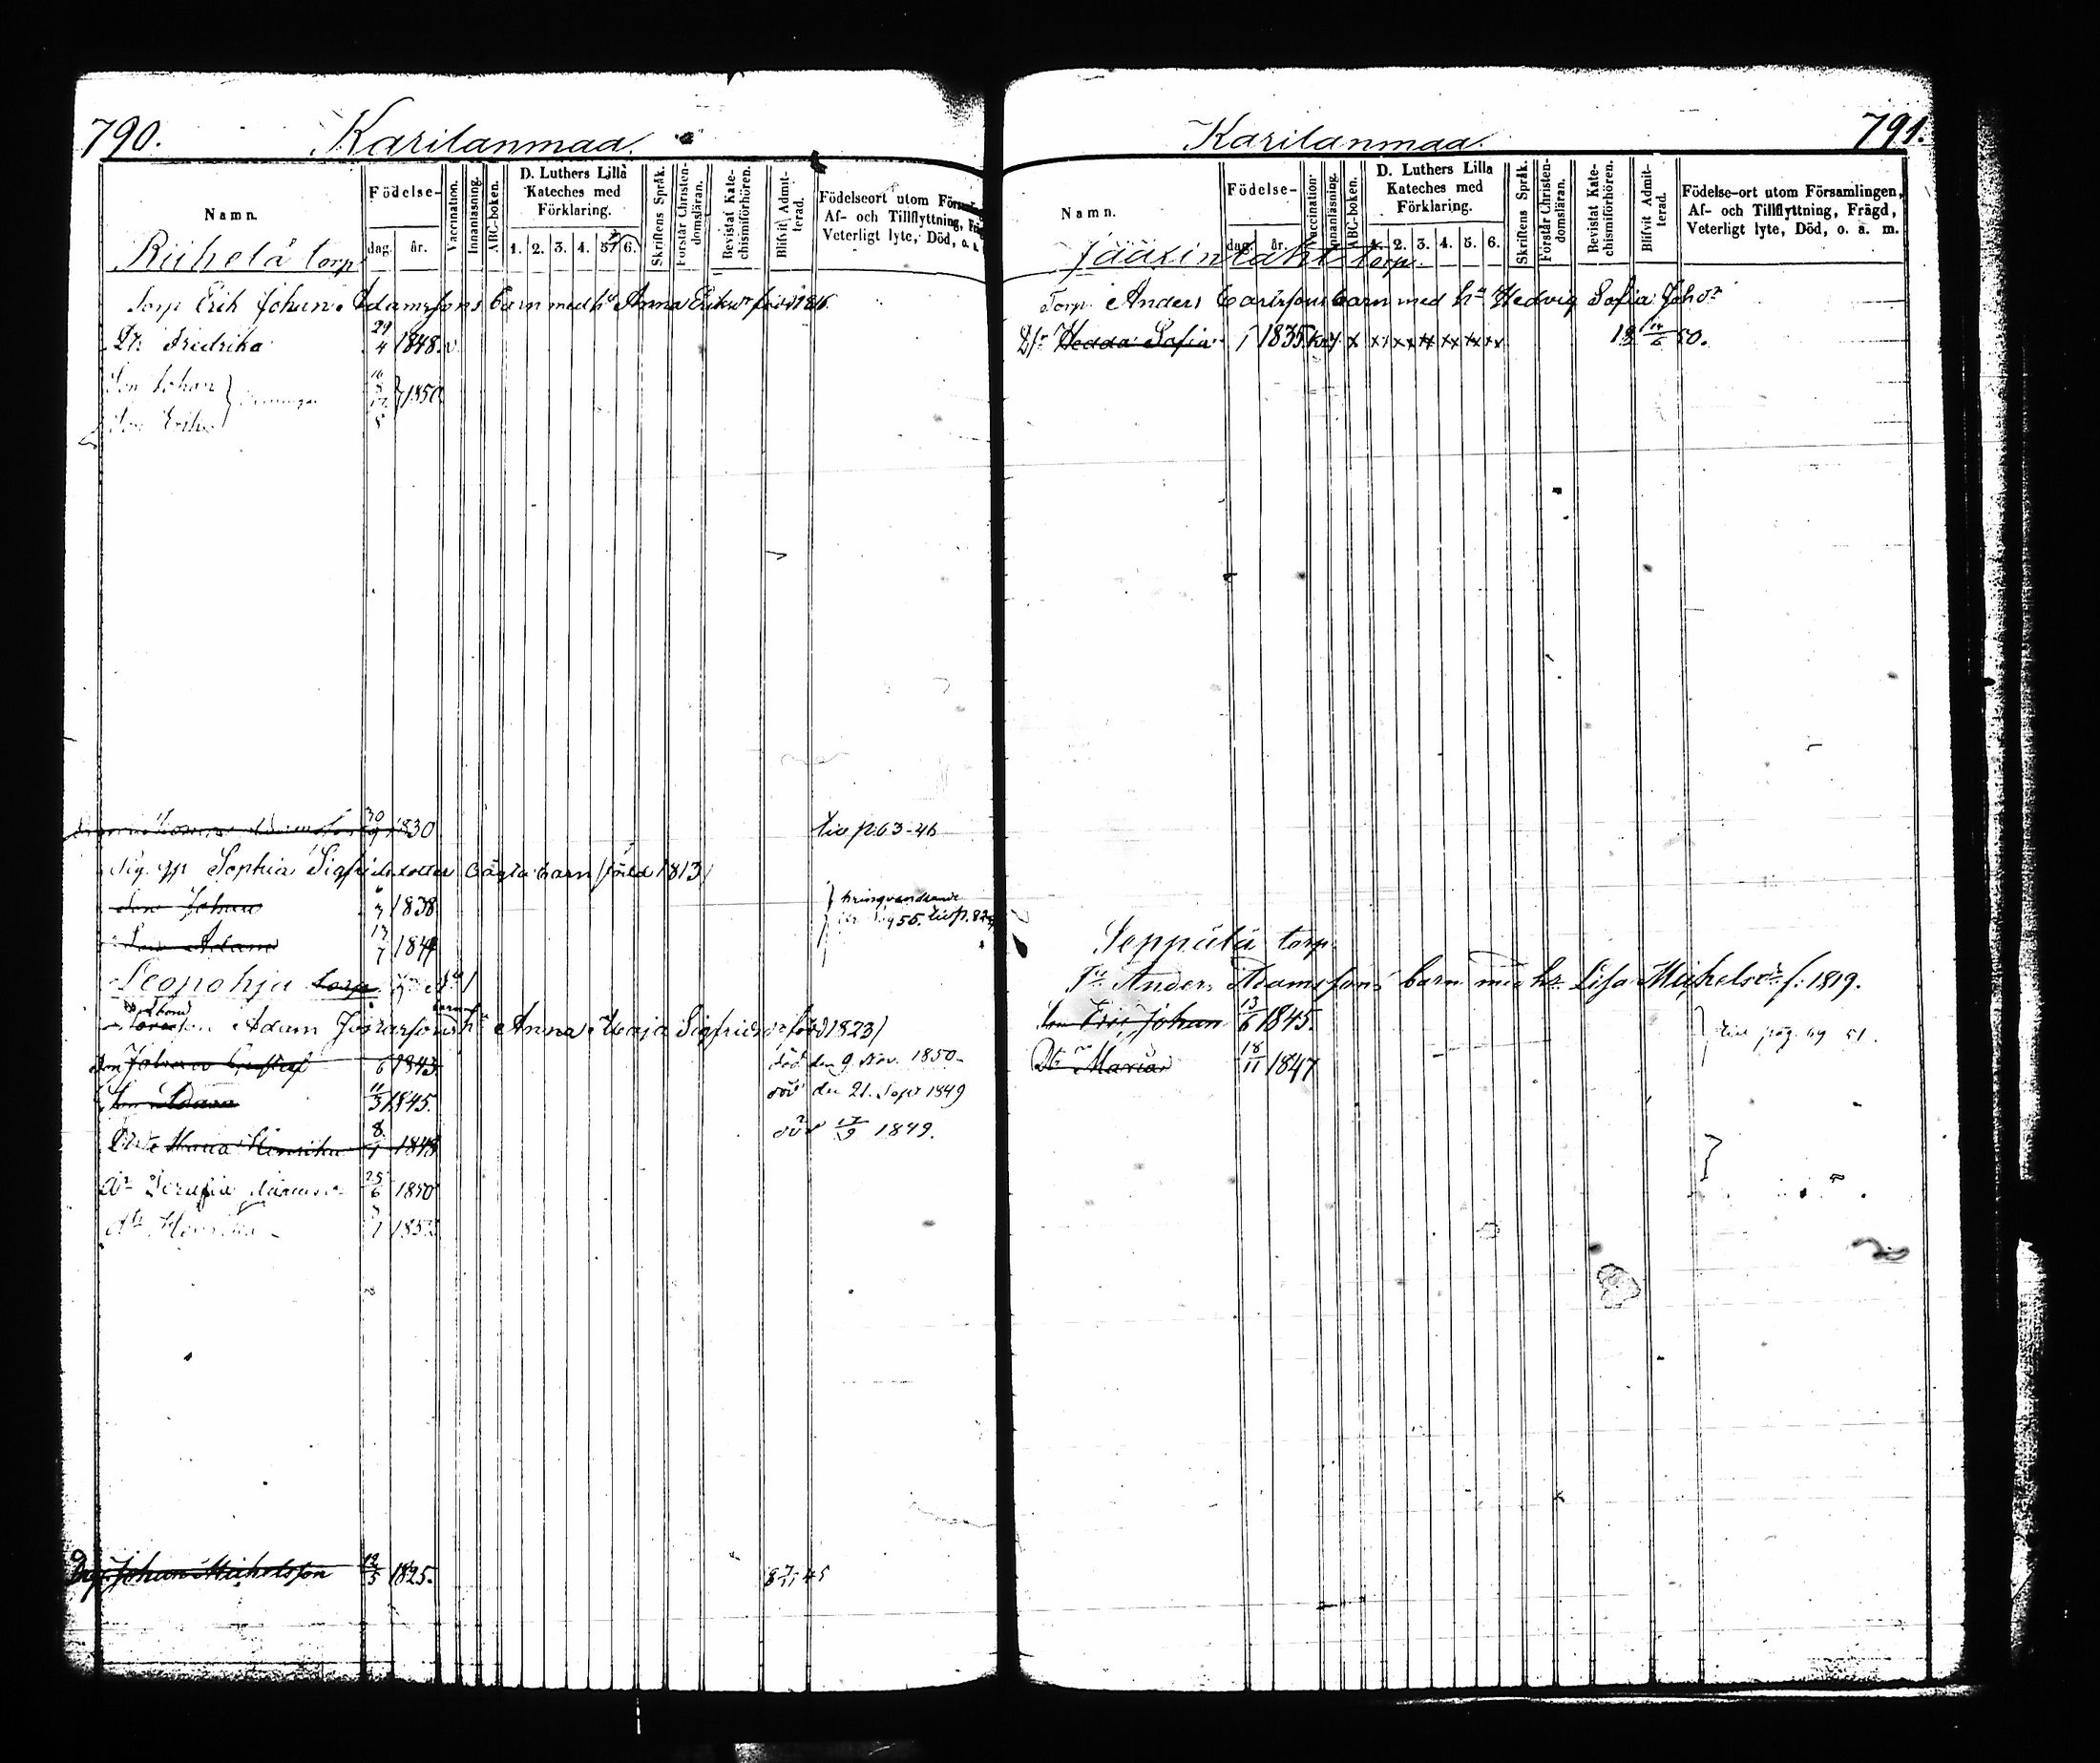 790. Karilanmaa.
Namn. Födelse- dag. år. Vaccination. Innanläsning. ABC-boken. D. Luthers Lilla Kateches med Förklaring. 1. 2. 3. 4. 5. 6. Skriftens Språk. Förstår Christendomsläran. Bevistat Katechismiförhören. Blifvit Admitterad. Födelseort utom
Af- och Tillflyttning,
Veterligt lyte, Död, o. a.
Riihelä torp
Torp Erik Johan Adamssons barn med hu Anna Eriksdr född 1816
Dtr Fredrika 29/4 1848 v
Son Johan 1850
Son Erik
30/9 1830 live p. 63-46
Sophia Sigfridsdotter oägta barn (född 1813)
Son Johan 1838 kringvandrande
Son Adam 13/7 1844 55. live p. 82
Leopohja torp No 1
Adam barn m hu Anna Maja Sigfridsdr född 1823)
Son Johan Gustaf 6 1843 död den 9 Nov. 1850
Son Adam 11/3 1845. död den 21. Sept 1849
Dtr Maria Henrika 8/1 1848 död 17/9 1849.
Dr Serafia 25/6 1850
Dtr Henrika 1853
Johan Michelsson 12/5 1825. 45
Karilanmaa. 791.
Namn. Födelse- dag. år. Vaccination. Innanläsning. ABC-boken. D. Luthers Lilla Kateches med Förklaring. 1. 2. 3. 4. 5. 6. Skriftens Språk. Förstår Christendomsläran. Bevistat Katechismiförhören. Blifvit Admitterad. Födelse-ort utom Församlingen,
Af- och Tillflyttning, Frägd,
Veterligt lyte, Död, o. a. m.
Jääsinlahti torp.
Torp. Anders Carlssons barn med hu Hedvig Sofia Johdr
Dtr Hedda Sofia 1 1835 x xx xx xx xx xx xx 18 14/6 50.
Seppälä torp
Anders Adamssons barn med hu Lisa Michelsdr f. 1819.
Son Eric Johan 13/6 1845. live pag. 69 51.
Dtr Maria 18/11 1847